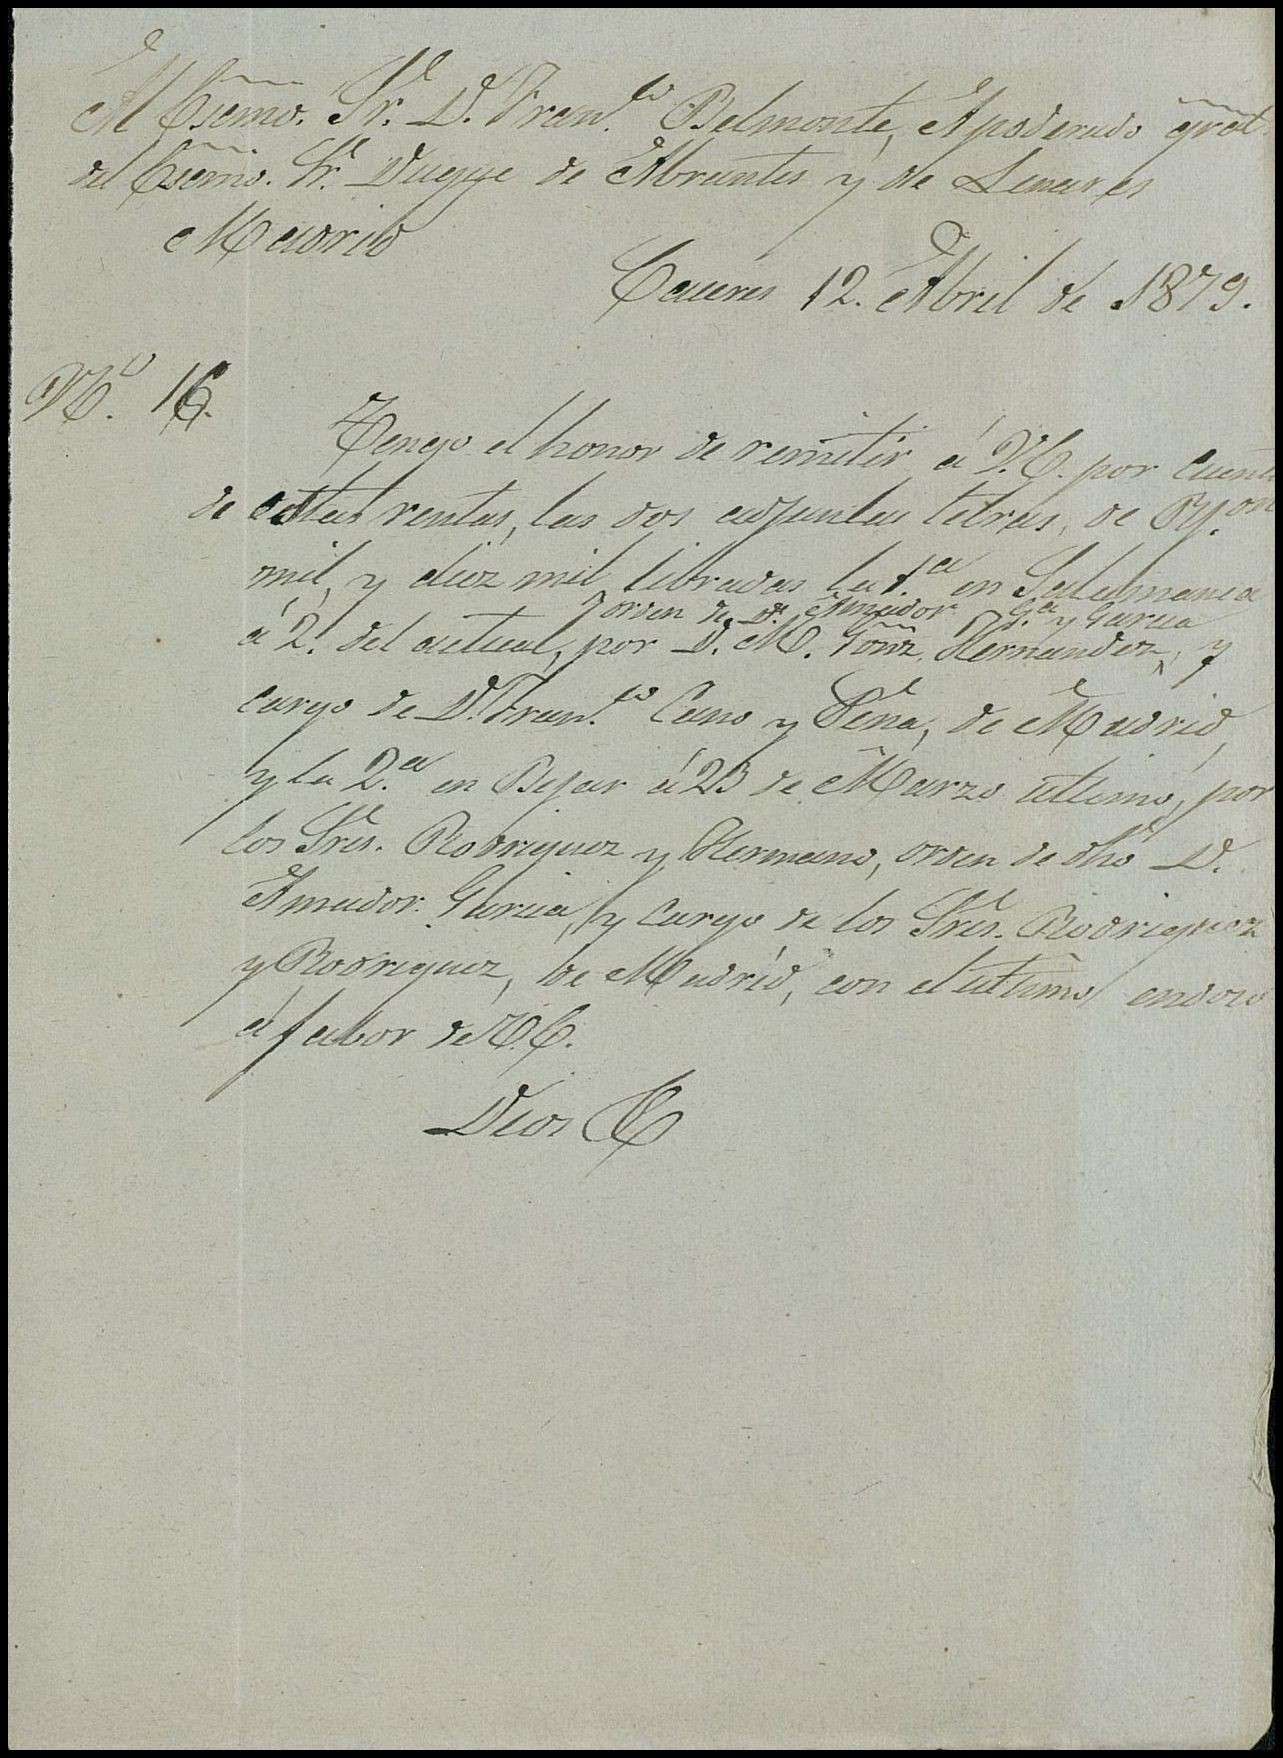 Al Escmo. Sr. D. Fran.co Belmonte, Apoderado gral.
del Escmo. Sr. Duque de Abrantes y de Linares
Madrid
Caceres 12. Abril de 1879.
N.o 16.
Tengo el honor de remitir á V.E. por cuenta
de estas rentas, las dos adjuntas letras, de
mil, y diez mil libradas la 1.a en Salamanca
orden de D. Amador G.a y Garcia
á 2. del actual, por D. M. Gomz. Hernandez, y
cargo de D. Fran.co Cano y Peña, de Madrid,
y la 2.a en Bejar á 23 de Marzo ultimo, por
los Sres. Rodriguez y Hermano, orden de dho D.
Amador Garcia, y cargo de los Sres. Rodriguez
y Rodriguez, de Madrid, con el ultimo endoso
á fabor de V.E.
Dios &